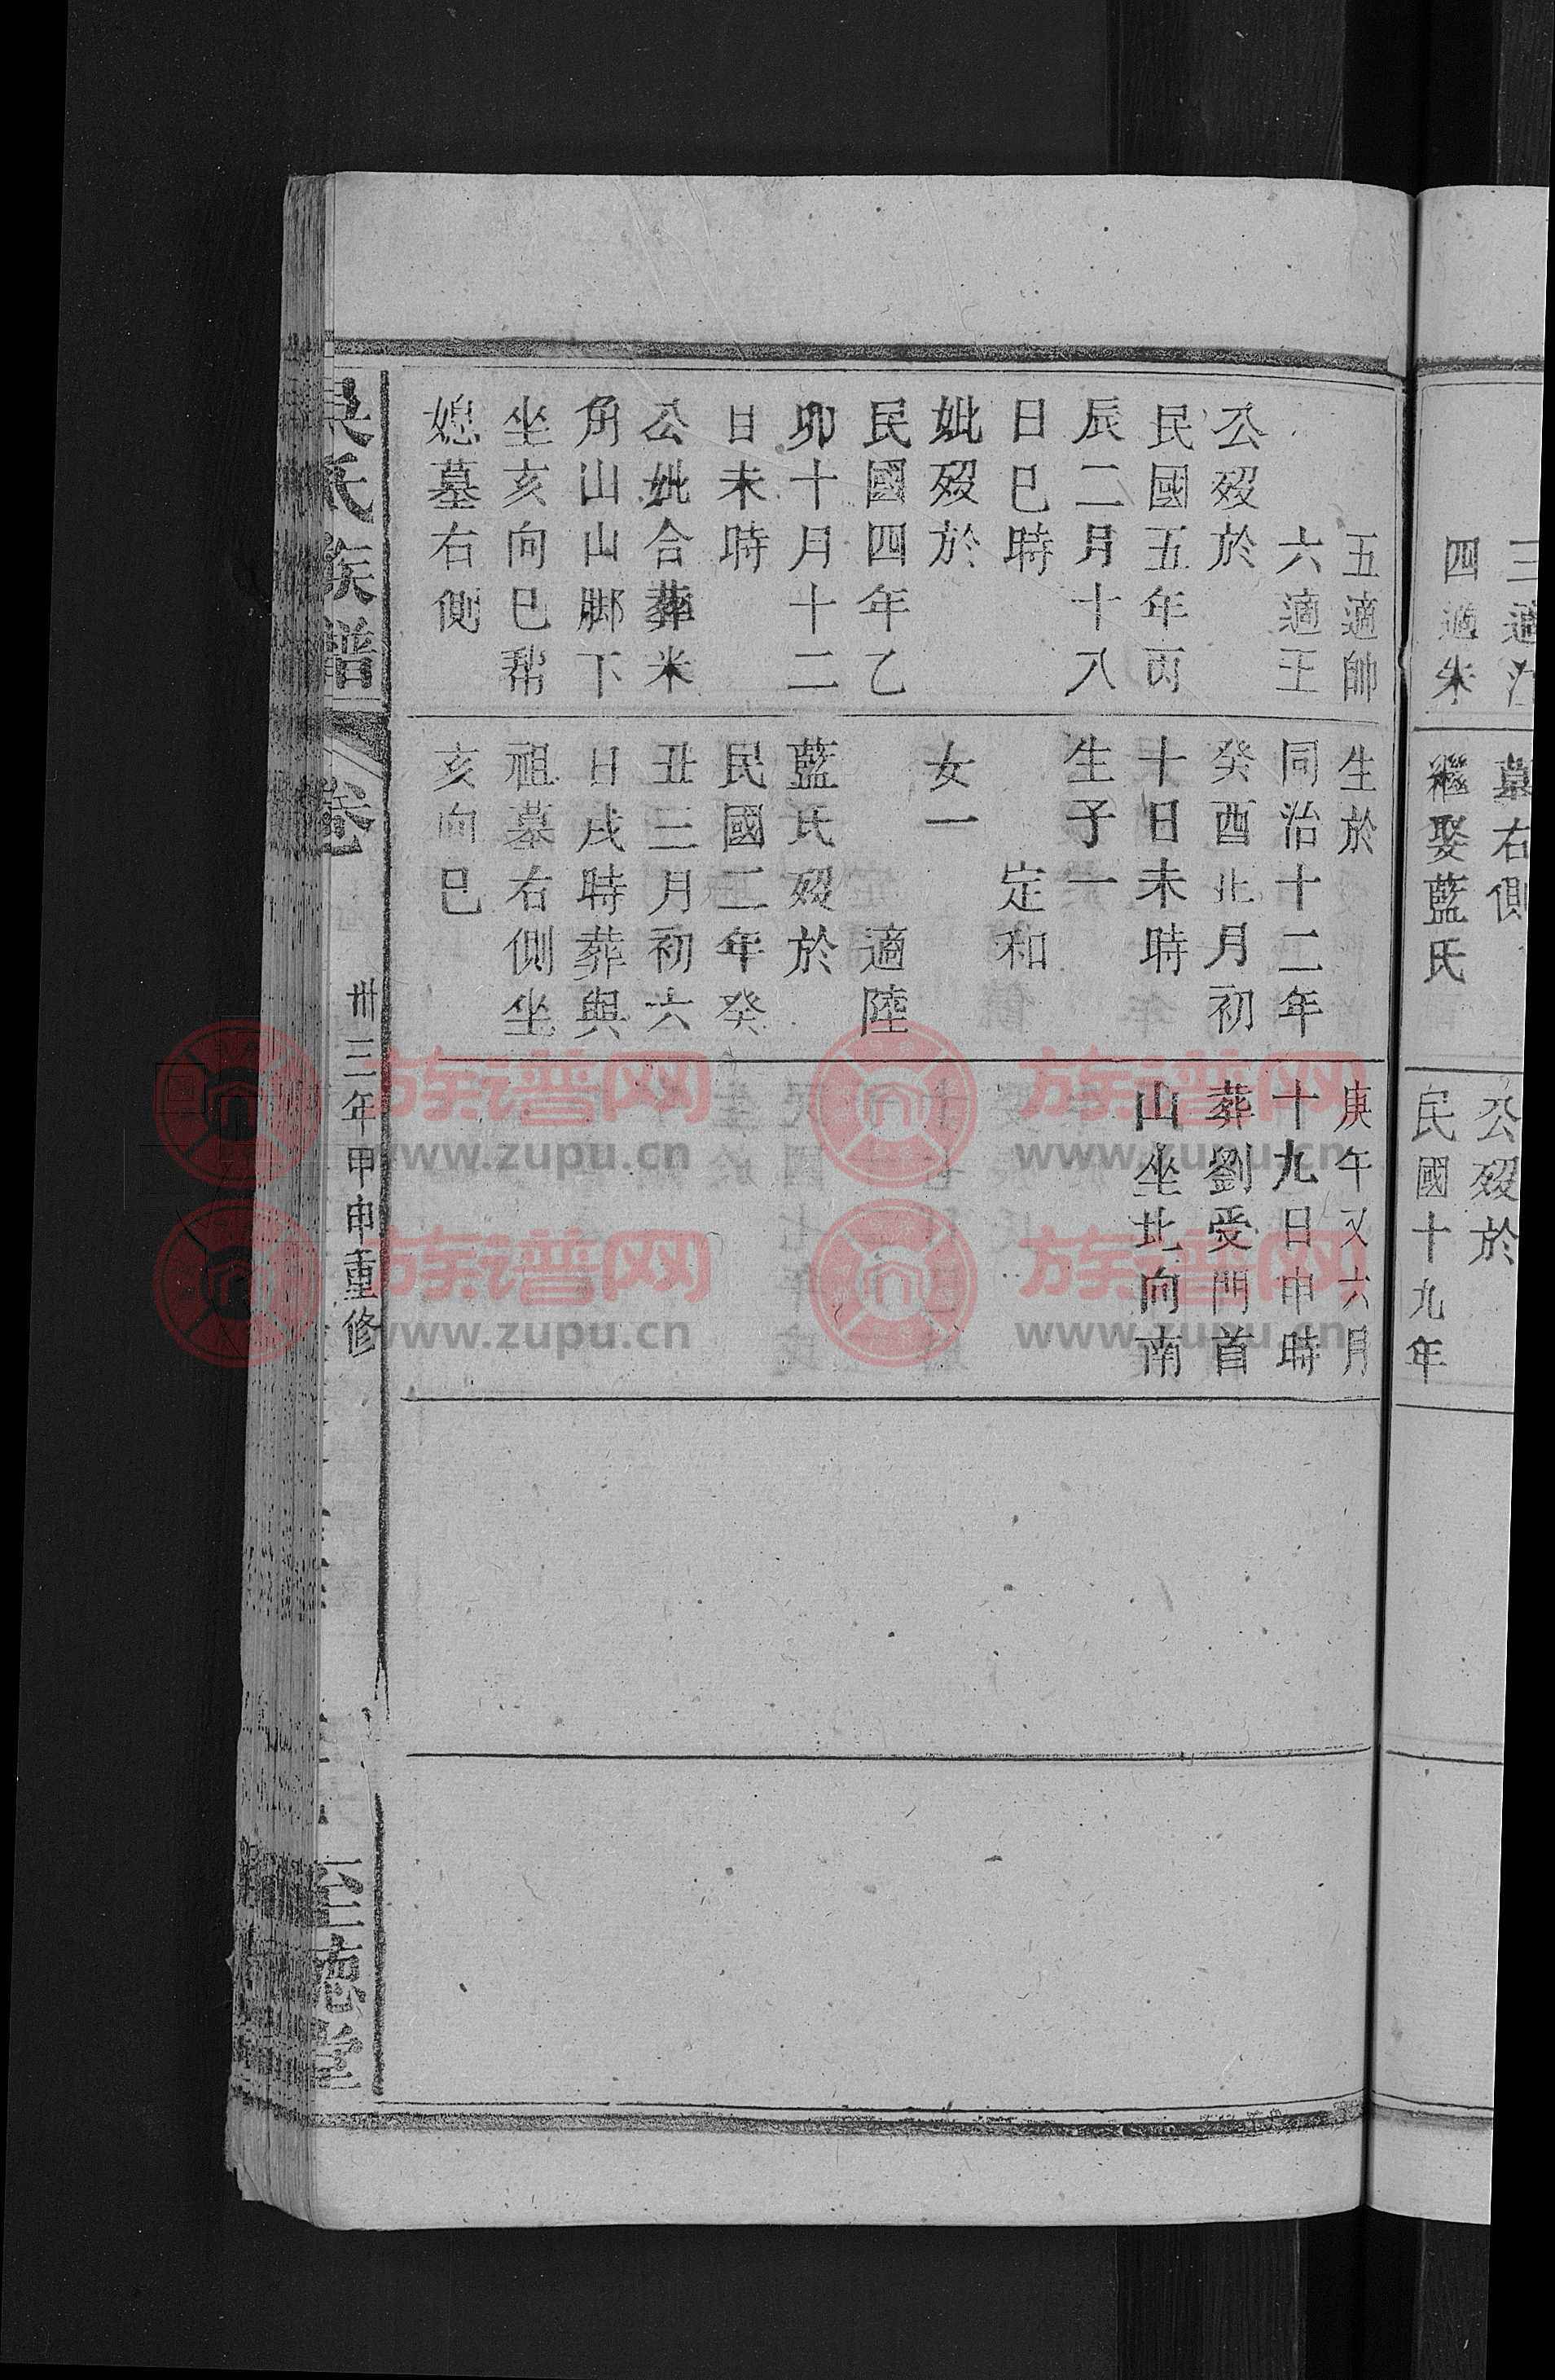 三適江
四適朱
墓右側
繼娶藍氏
公歿於
民國十九年
五適帥
六適王
公歿於
民國五年丙
辰二月十八
日巳時
妣歿於
民國四年乙
卯十月十二
日未時
公妣合葬米
角山山脚下
坐亥向巳帮
媳墓右側
生於
同治十二年
癸酉北月初
十日未時
生子一
定和
女一
適陸
藍氏歿於
民國二年癸
丑三月初六
日戌時葬與
祖墓右側坐
亥向巳
庚午又六月
十九日申時
葬劉受門首
山坐北向南
吳氏族譜
卷
卅三年甲申重修
至德堂
族谱网
www.zupu.cn
族谱网
www.zupu.cn
族谱网
www.zupu.cn
族谱网
www.zupu.cn